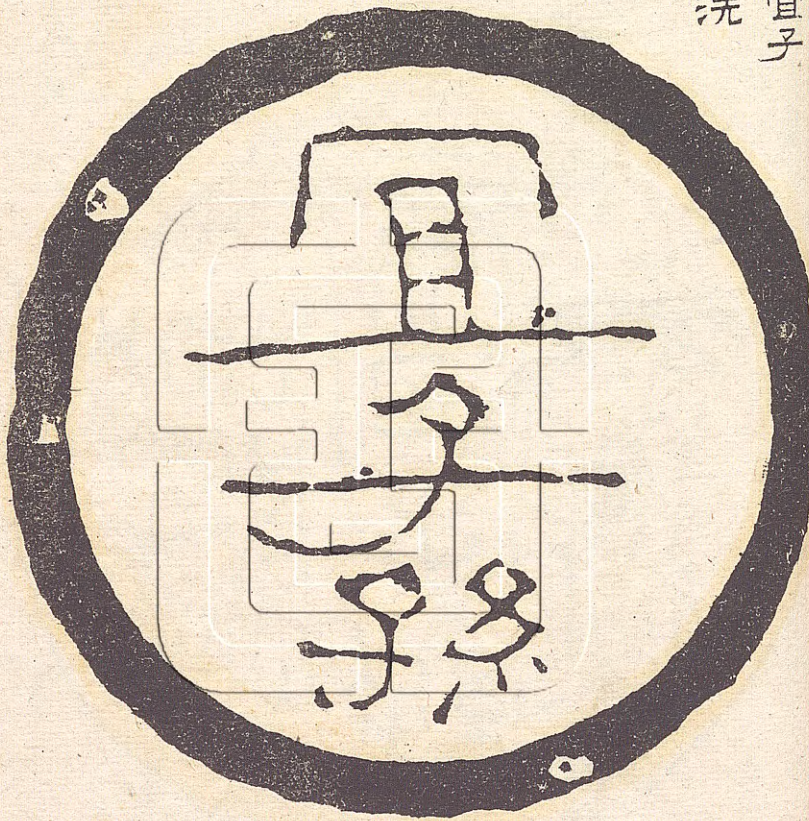 宜子
洗
宜
子
孫